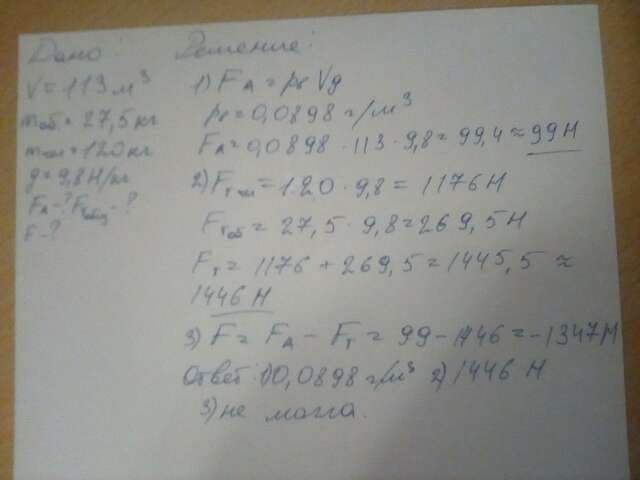 Дано:
V = 113 м³
mоб = 27,5 кг
mчел = 120 кг
g = 9,8 Н/кг
FA - ? Fтобщ - ?
F - ?
Решение:
1) FA = ρв Vg
ρв = 0,0898 г/м³
FA = 0,0898 · 113 · 9,8 = 99,4 ≈ 99 Н
2) Fт чел = 120 · 9,8 = 1176 Н
Fт об = 27,5 · 9,8 = 269,5 Н
Fт = 1176 + 269,5 = 1445,5 ≈
1446 Н
3) F = FA - Fт = 99 - 1446 = -1347 Н
Ответ: 1) 0,0898 г/м³ 2) 1446 Н
3) не могла.